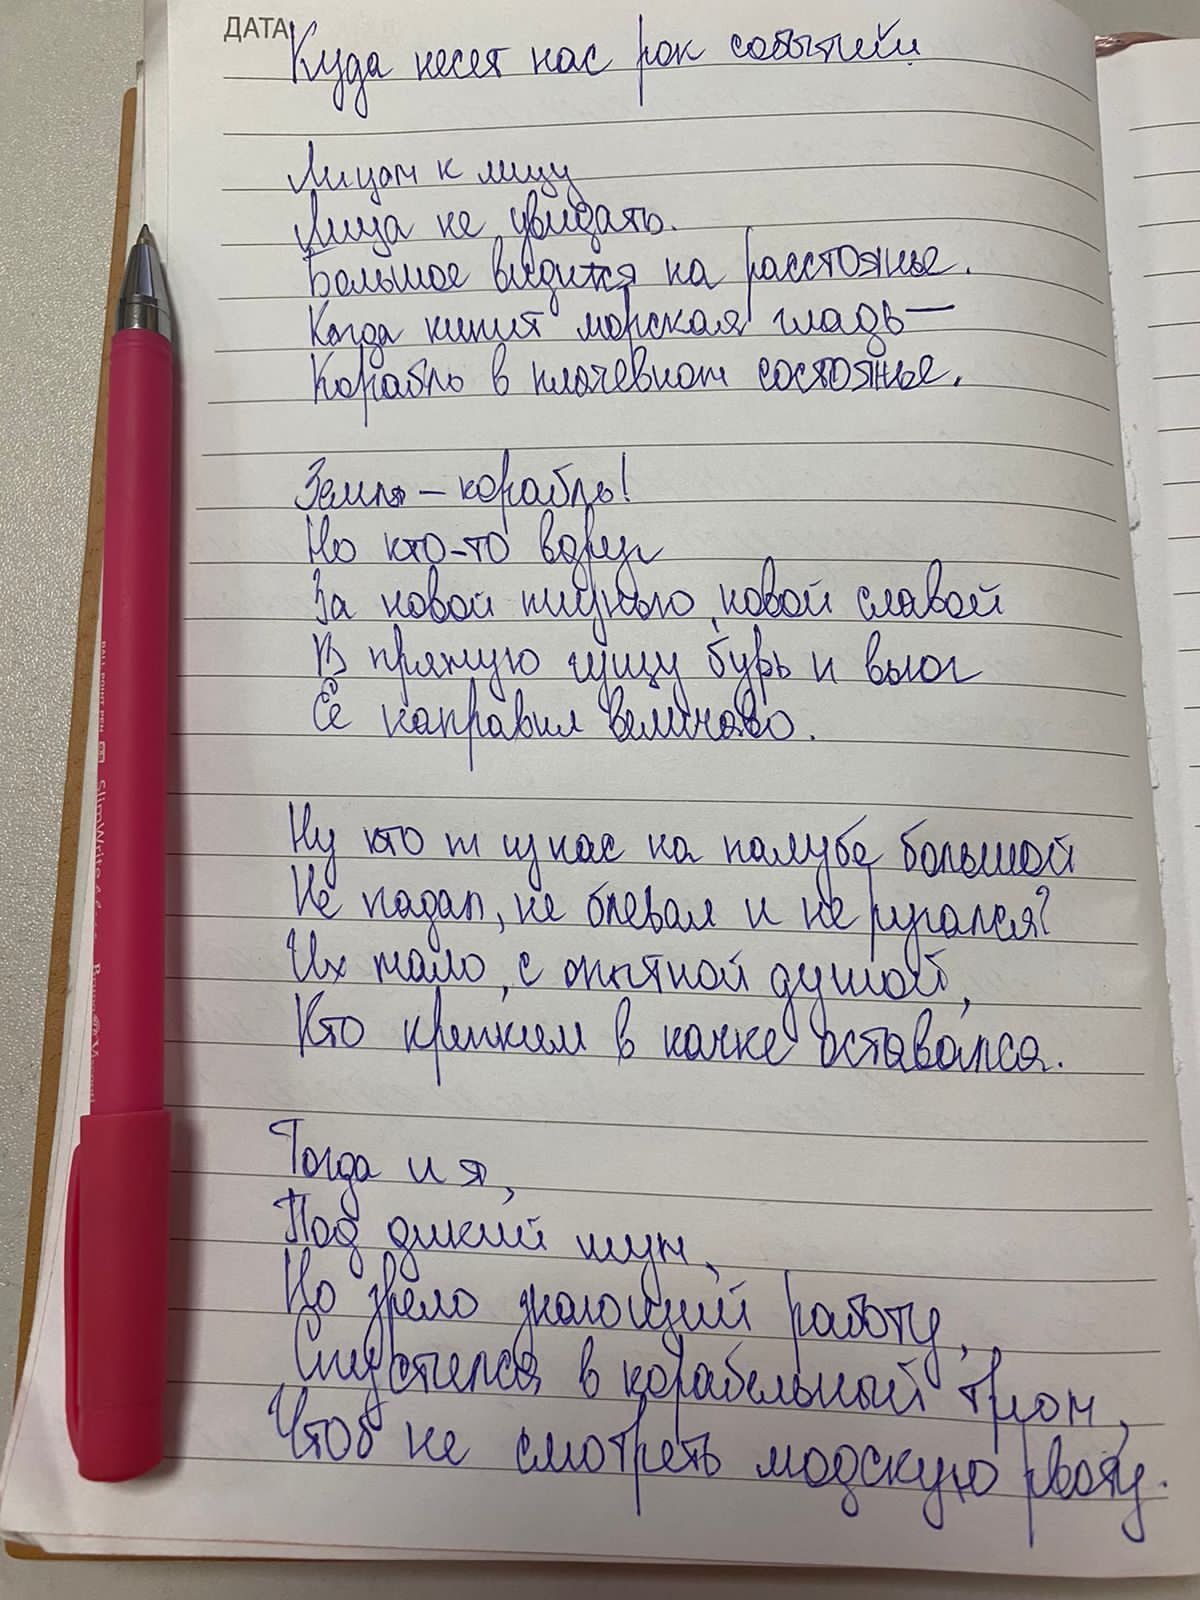 ДАТА
Куда несет нас рок событий
Лицом к лицу
Лица не увидать.
Большое видится на расстоянье.
Когда кипит морская гладь —
Корабль в плачевном состоянье.
Земля – корабль!
Но кто-то вдруг
За новой жизнью, новой славой
В прямую гущу бурь и вьюг
Её направил величаво.
Ну кто ж из нас на палубе большой
Не падал, не блевал и не ругался?
Их мало, с опытной душой,
Кто крепким в качке оставался.
Тогда и я,
Под дикий шум,
Но зрело знающий работу,
Спустился в корабельный трюм,
Чтоб не смотреть людскую рвоту.
BALL POINT PEN
SlimWrite